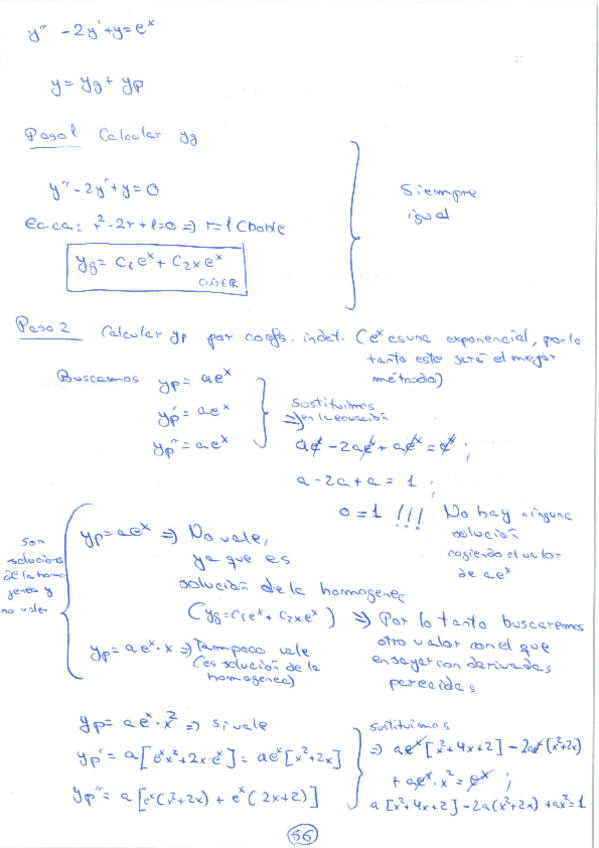 y'' - 2y' + y = e^x
y = yg + yp
Paso 1 Calcular yg
y'' - 2y' + y = 0
Ec.ca: r² - 2r + 1 = 0 => r = 1 (doble
yg = C₁e^x + C₂xe^x
C₁,C₂ ∈ ℝ
Siempre
igual
Paso 2 Calcular yp por coefs. indet. (e^x es una exponencial, por lo
tanto este será el mejor
método)
Buscamos yp = ae^x
yp' = ae^x
yp'' = ae^x
Sustituimos
=> en la ecuación
ae^x - 2ae^x + ae^x = e^x ;
a - 2a + a = 1 ;
0 = 1 !!! No hay ninguna
solución
cogiendo el valor
de ae^x
Son
soluciones
de la homo
genea y
no valen
yp = ae^x => No vale,
ya que es
solución de la homogenea
(yg = c₁e^x + c₂xe^x)
=> Por lo tanto buscaremos
otro valor con el que
ensayar con derivadas
parecidas
yp = ae^x · x => Tampoco vale
(es solución de la
homogenea)
yp = ae^x · x² => si vale
yp' = a[e^x x² + 2x·e^x] = ae^x[x² + 2x]
yp'' = a[e^x(x² + 2x) + e^x(2x + 2)]
Sustituimos
=> ae^x[x² + 4x + 2] - 2ae^x(x² + 2x)
+ ae^x · x² = e^x ;
a[x² + 4x + 2] - 2a(x² + 2x) + ax² = 1
56